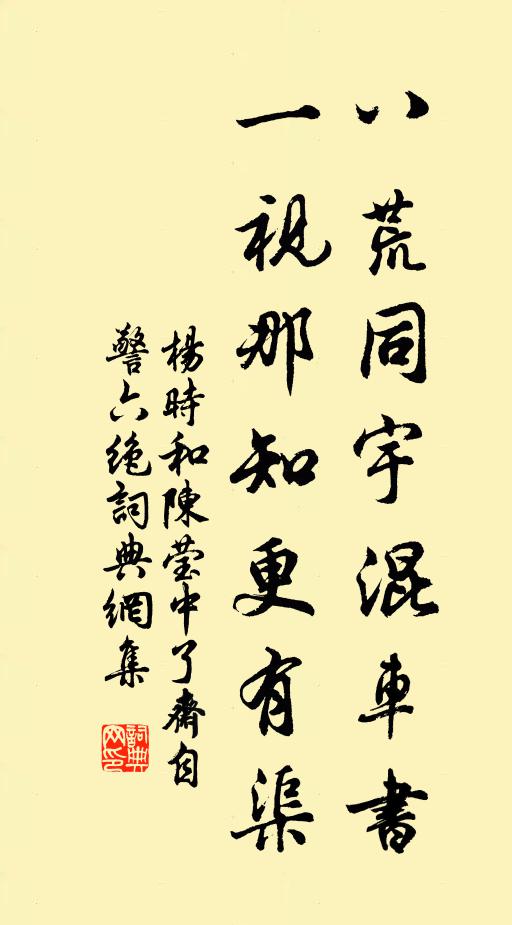 八荒同宇混車書
一視那知更有渠
楊時和陳瑩中了齋自
警六絶詞典網集
詞典网印